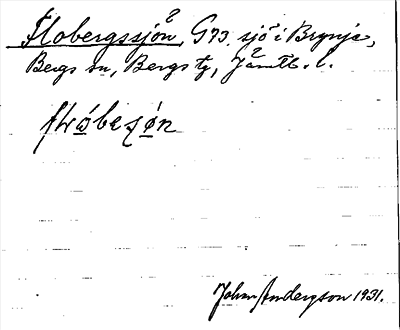 Flobergssjön, G73. sjö i Brynje,
Bergs sn, Bergs tg, Jämtl. l.
Johan Anderson 1931.